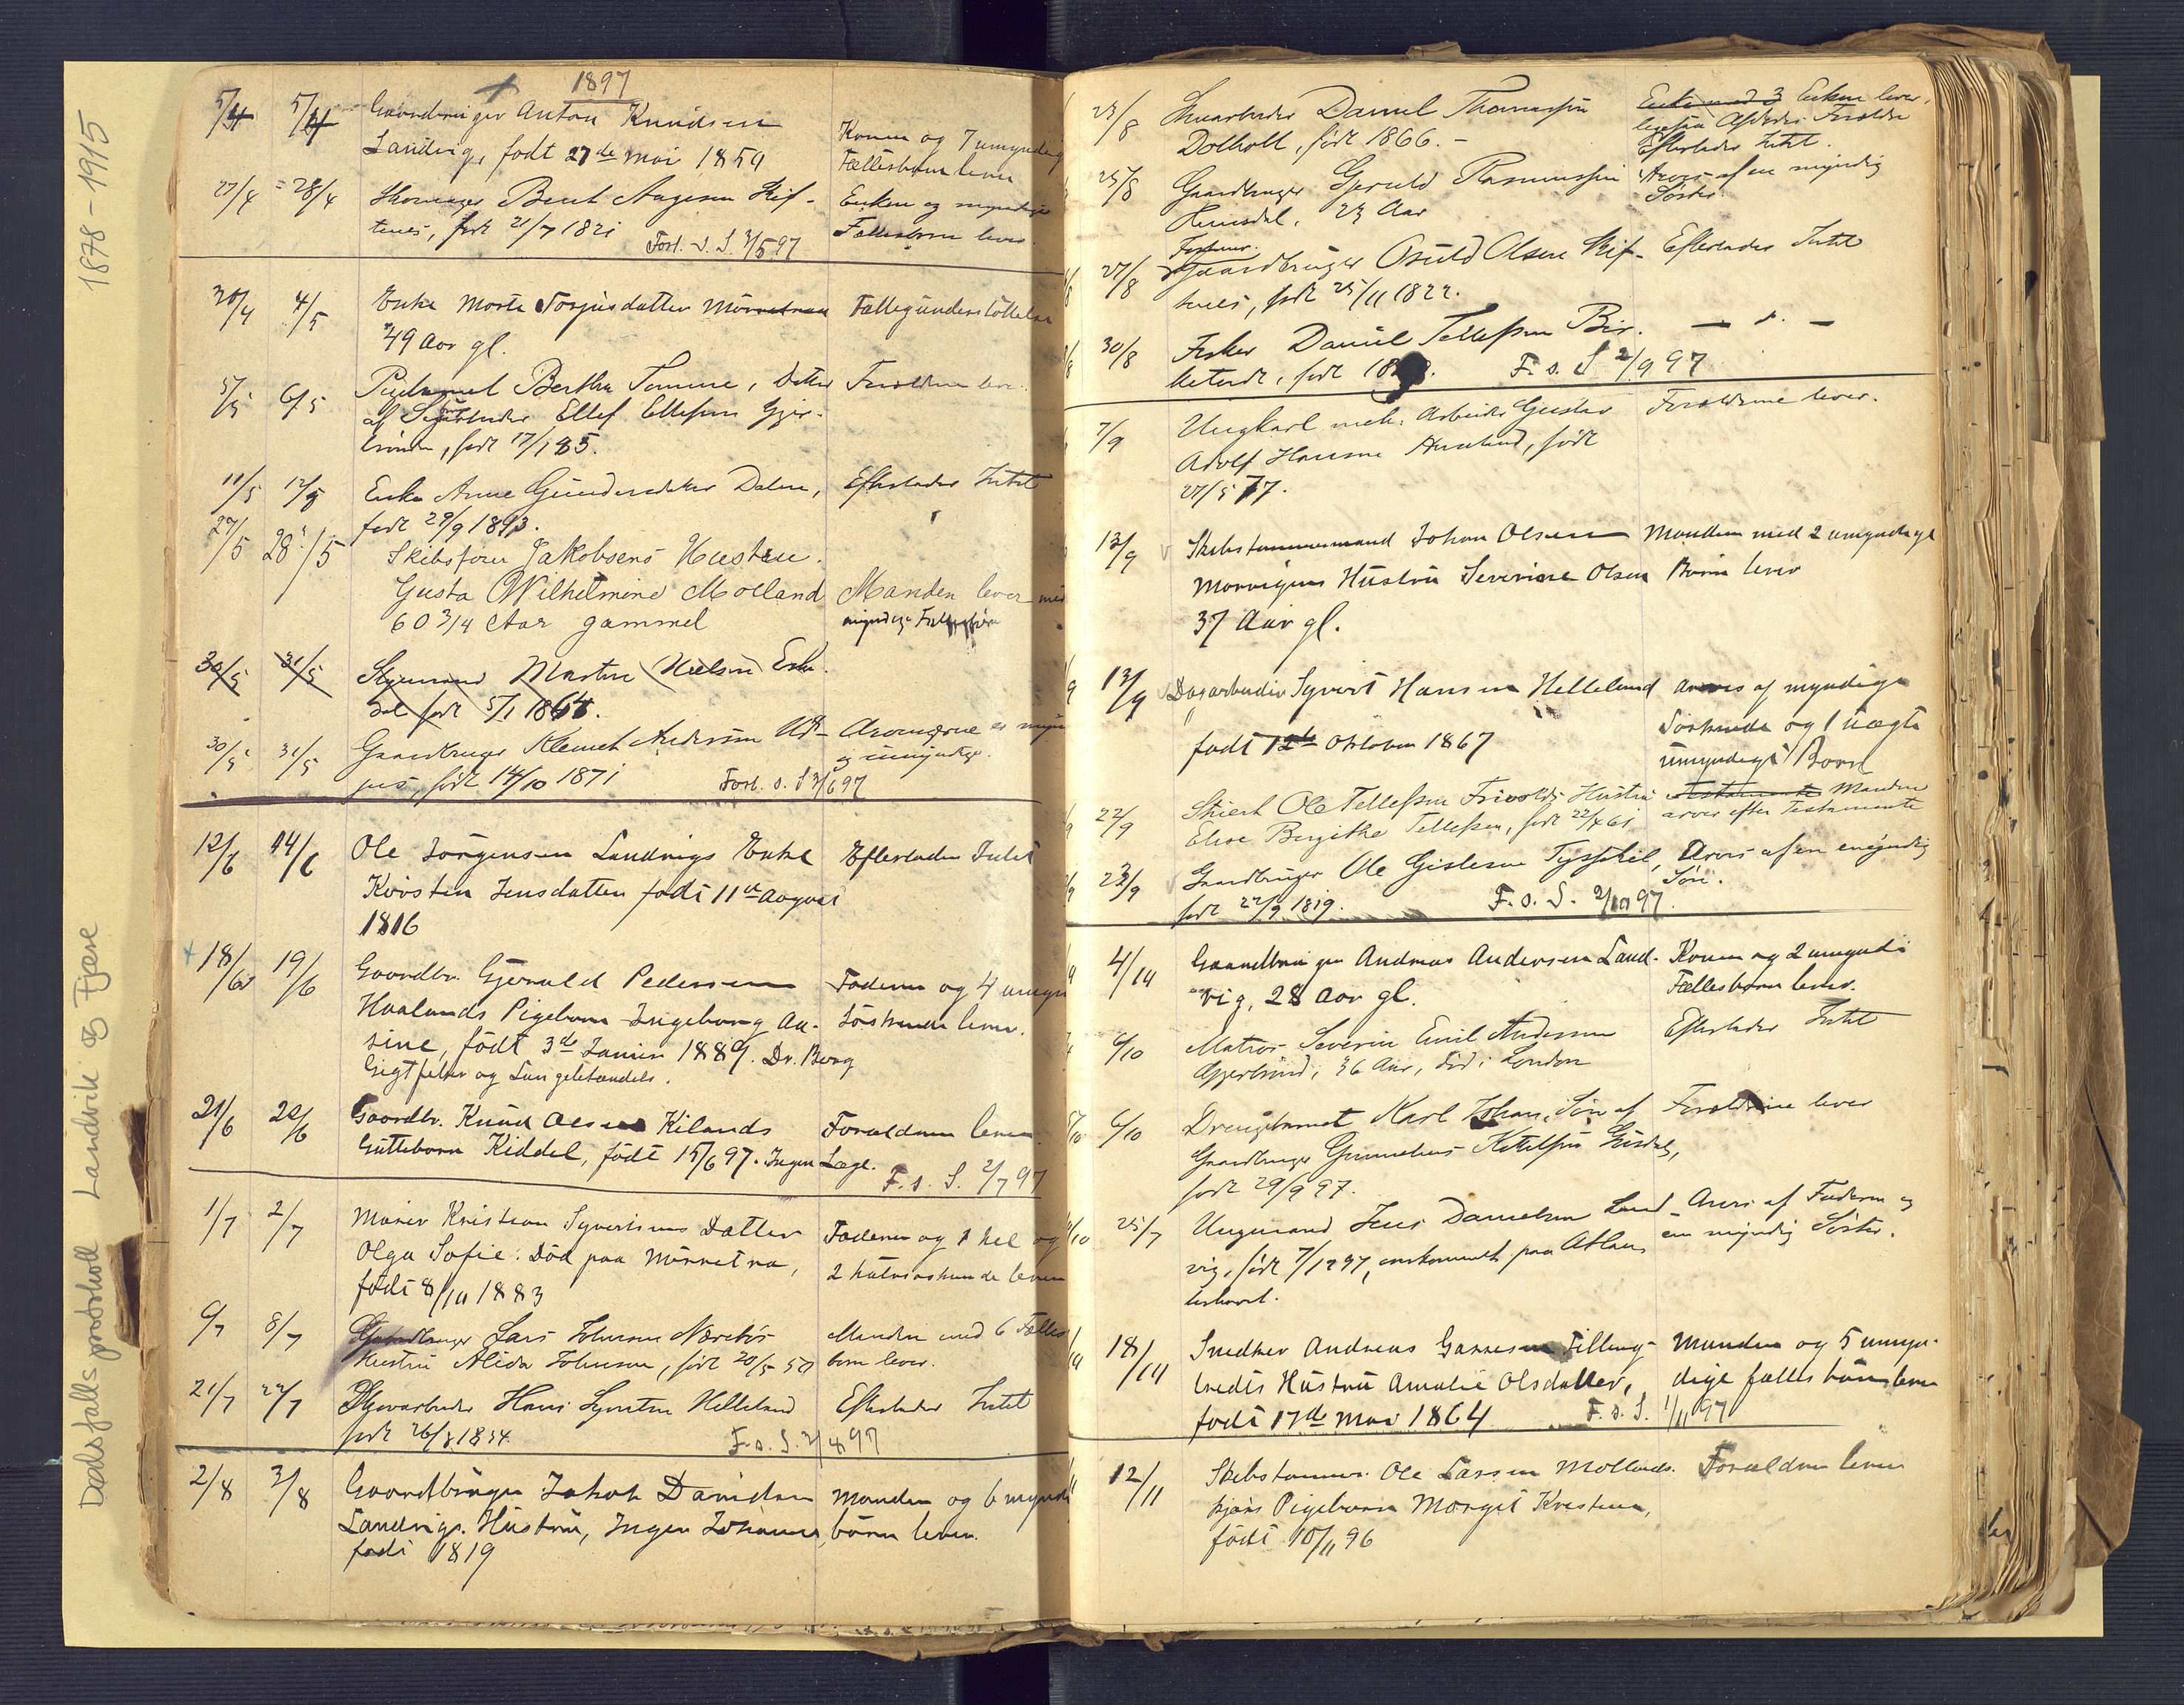 Dødsfalls protokoll Landvik og Fjære 1878 - 1915
1897
5/4 5/4 Gaardbruger Anton Knudsen
Landvig, født 27de mai 1859
Konen og 7 umyndig
Fællesbørn lever
27/4 28/4 Bent Aagesen Ref-
tenes, født 21/7 1821 Forl. s. S. 3/5 97
Enken og myndige
Fællesbørn lever
30/4 4/5 Enke Marte Torjusdatter
49 Aar gl.
Fattigunderstøttelse
5/5 6/5 Pigebarnet Bertha Tomine, Datter
af Ellef Ellefsen Gjer-
født 17/1 85.
Forældrene lever
11/5 12/5 Enke Anne Gundersdatter Dalen,
født 29/9 1893.
Efterlader Intet
27/5 28/5 Skibsfører Jakobsens Hustru
Gusta Wilhelmine Molland
60 3/4 Aar gammel
Manden lever med
myndige
30/5 31/5 Styrmand Martin Nielsen Eske-
dal født 5/1 1864.
30/5 31/5 Gaardbruger Klemet Andersen
født 14/10 1871 Forl. s. S 3/6 97
Arvingerne er
og umyndige.
12/6 14/6 Ole Jørgensen Landvigs Enke
Kirsten Jensdatter født 11te August
1816
Efterlader Intet
18/6 19/6 Gaardbr. Gjeruld Pedersen
Haalands Pigebarn Ingeborg Aa-
sine, født 3de Januar 1889. Dr. Berg
Gigtfeber og Lungebetændels.
Faderen og 4 umyn
Søskende lever.
21/6 22/6 Gaardbr. Knud Olsen Kilands
Guttebarn Kiddel, født 15/6 97. Ingen Læge.
Forældren lever
F. s. S. 2/7 97
1/7 2/7 Murer Kristian Syvertsens Datter
Olga Sofie. Død paa
født 8/10 1883
Faderen og 1 hel og
2 halvsøskende lever
6/7 8/7 Gaardbruger Lars Johnsen Nærebøs
Hustru Alida Johnsen, født 20/5 50
Manden med 6 Fælles
børn lever.
21/7 22/7 Skovarbeider Hans Syvertsen Helleland
født 26/8 1834
Efterlader Intet
F. s. S. 2/8 97
2/8 3/8 Gaardbruger Jakob Danielsen
Landvigs Hustru, Inger Johanne,
født 1819
Manden og 6 myndi
børn lever.
23/8 Daniel Thomassen
Dolholt, født 1866. -
Enke med 3 Enken lever,
Afdødes Forældre
Efterlader Intet.
25/8 Gaardbruger Gjeruld Rasmussen
23 Aar
Arves af en myndig
Søster.
27/8 Gaardbruger Osuld Olsen Ref-
tenes, født 25/11 1822.
Efterlader Intet
30/8 Fisker Daniel Tellefsen Bir-
ketvedt, født 18
F. s. S 2/9 97
7/9 Ungkarl mek. Arbeider Gustav
Adolf Hansen født
27/5 77.
Forældrene lever.
13/9 Skibstømmermand Johan Olsen
Morvigens Hustru Severine Olsen
37 Aar gl.
Manden med 2 umyndige
Børn lever
13/9 Dagarbeider Syvert Hansen Helleland
født 12te Oktober 1867
arves af myndige
Søskende og 1 uægte
umyndigt Barn
22/9 Ole Tellefsen Frivolds Hustru
Elise Birgithe Tellefsen, født 22/4 61
Testamente Manden
arver efter Testamente
23/9 Gaardbruger Ole Gislesen
født 22/9 1819.
Arves af en umyndig
Søn.
F. s. S. 2/10 97.
4/10 Gaardbruger Andreas Andersen Land-
vig, 28 Aar gl.
Konen og 2 umyndi
Fællesbørn lever.
6/10 Matros Severin Emil Andersen
36 Aar, død i London
Efterlader Intet
6/10 Drengebarnet Karl Johan, Søn af
Gaardbruger Gunnelius Kittelsen
født 29/9 97.
Forældrene lever
25/7 Ungmand Jens Danielsen Land-
vig, født omkommet paa Atlan-
terhavet.
Arves af Faderen og
en myndig Søster.
18/10 Snedker Andreas Gassesen Filling-
Hustru Amalie Olsdatter,
født 17de mai 1864
Manden og 5 umyn-
dige fællesbørn lever
F. s. S. 1/11 97
12/11 Skibstømmer. Ole Larsen Mollands-
kjærs Pigebarn Margit Kristine,
født 10/11 96
Forældren lever